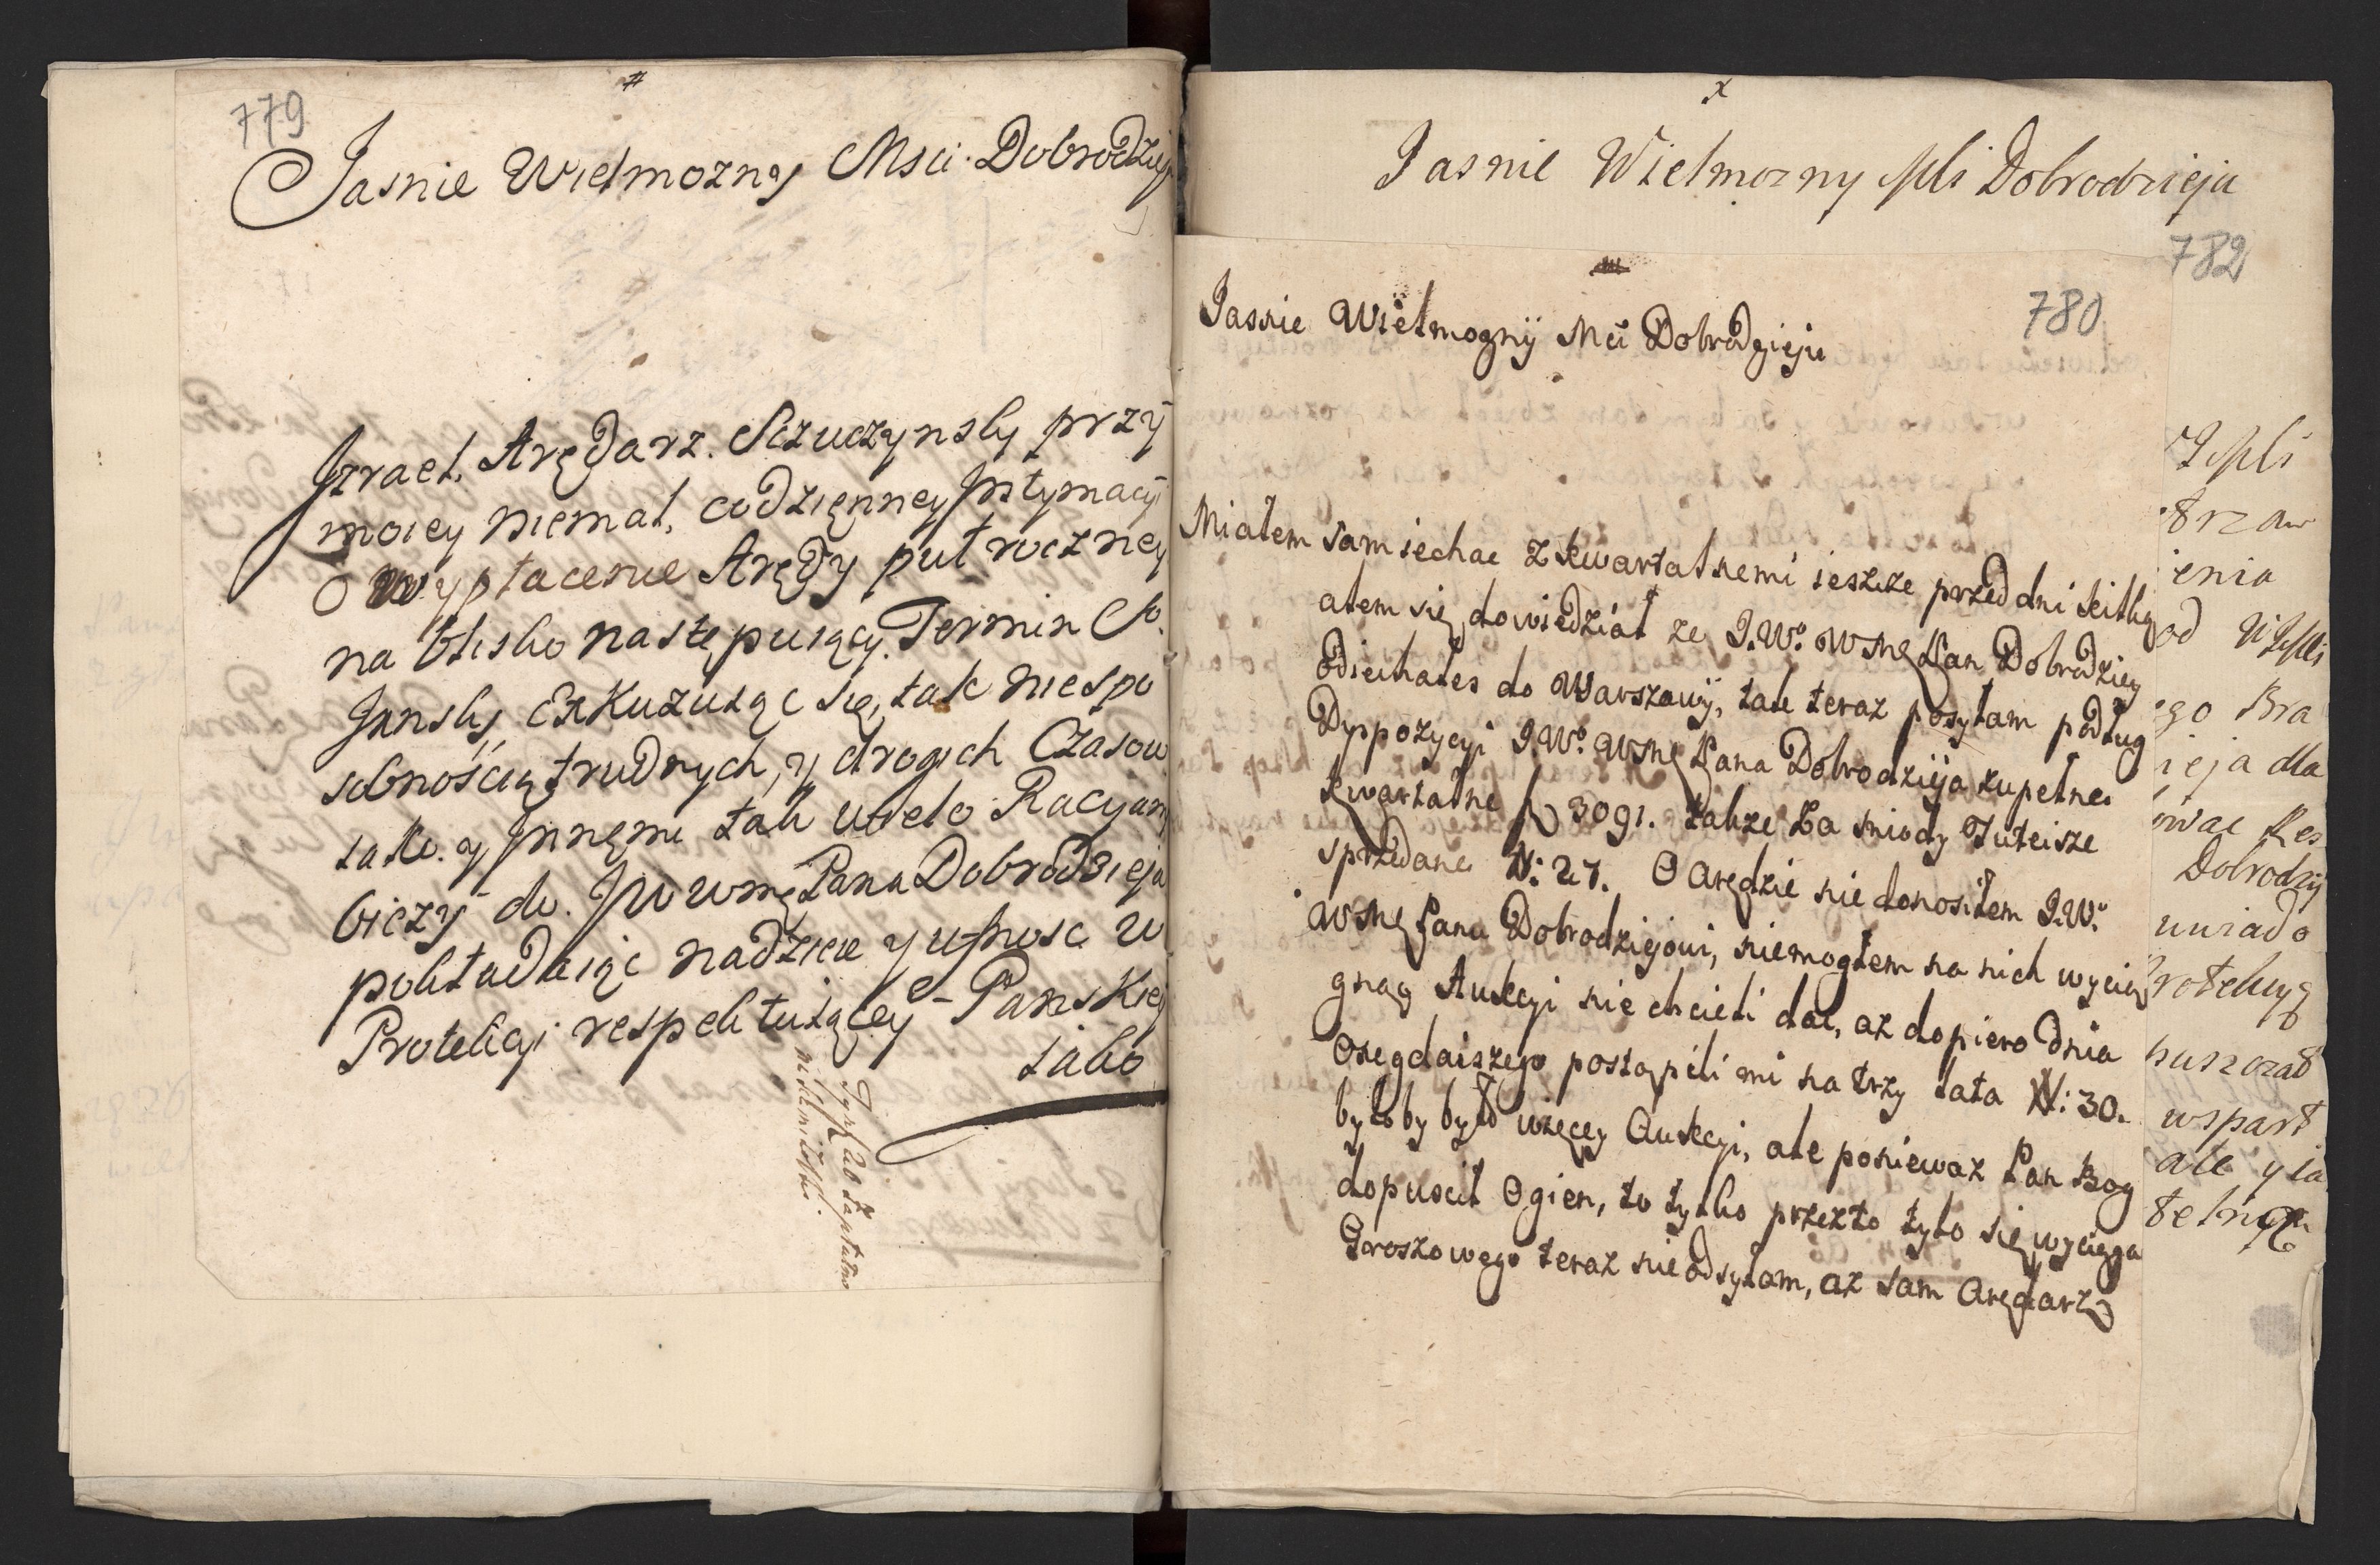 779
#
Jasnie Wielmozny Msci Dobrodzieju
Jzrael, Arędarz. Sczuczynsky przÿ
moiey niemal, codzięnney Jnstymacyi
O wypłacenie Arędy puł roczney
na blisko następuiący. Termin S.
Jansky ExKuzuiąc się, tak niespo
sobnością trudnych, y drogich Czasow
iako. y Jnnęmi tak wielo Racyiamy
biezÿ do. JW wmę Pana Dobrodzieja
pokładaiąc nadzieie y ufnosc w
Protekcyi respektuiącey Panskiey
iako
x
Jasnie Wielmozny Mci Dobrodzieju
782
780
Jasnie Wielmoznÿ Mci Dobrodzieju
Miałem sam iechac z kwartalnemi ieszcze przed dni kilką
ałem się dowiedział ze J.W.º WMę Pan Dobrodziey
Odiechałes do Warszawÿ, tak teraz posyłam podług
Dyppozycyi J.Wº WMę Pana Dobrodzieja zupełne
kwartalne 30 gr. także za miody Tuteisze
sprzedane N: 27. O Arędzie nie donosiłem J.W.º
WMę Panu Dobrodziejowi, niemogłem na nich wycią
gnąg Aukcyi nie chcieli dac, az dopiero Dnia
Onegdaiszego postąpili mi na trzy lata N: 30.
byłoby było więcey Aukcyi, ale poniewaz Pan Bog
dopuscił Ogien, to tylko przezto tylo się wyciąga
Groszowego teraz nie odsyłam, az sam Arędarz
enia
od
ego Bra
ieja dla
owac Res
Dobrodziÿ
uwiado
rotekcyą
wspart
ale y ia